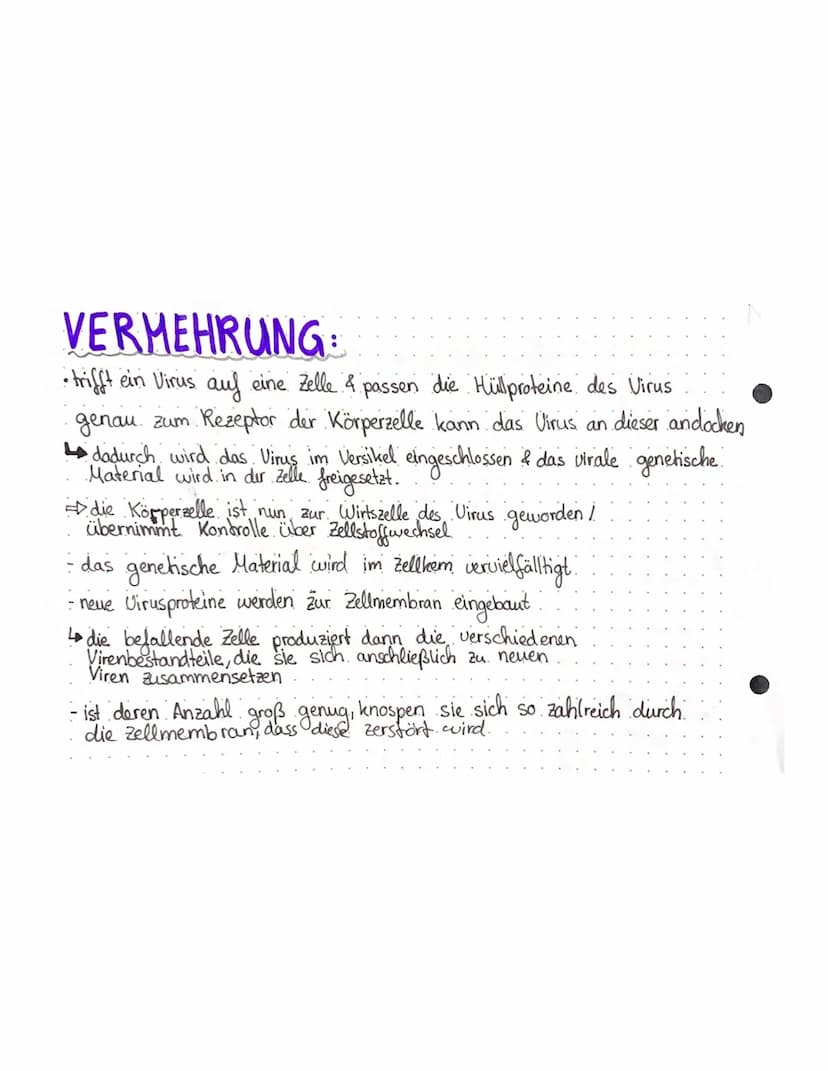 VERMEHRUNG:
• trifft ein Virus auf eine Zelle & passen die Hüllproteine des Virus
genau zum Rezeptor der Körperzelle kann das Virus an dieser andocken
↳ dadurch wird das Virus im Versikel eingeschlossen & das virale genetische
Material wird in der Zelle freigesetzt.
⇒ die Körperzelle ist nun zur Wirtszelle des Virus geworden /
übernimmt Kontrolle über Zellstoffwechsel
- das genetische Material wird im Zellkern vervielfälltigt
- neue Virusproteine werden zur Zellmembran eingebaut
↳ die befallende Zelle produziert dann die verschiedenen
Virenbestandteile, die sie sich anschließlich zu neuen
Viren zusammensetzen
- ist deren Anzahl groß genug, knospen sie sich so zahlreich durch
die Zellmembran, dass diese zerstört wird.